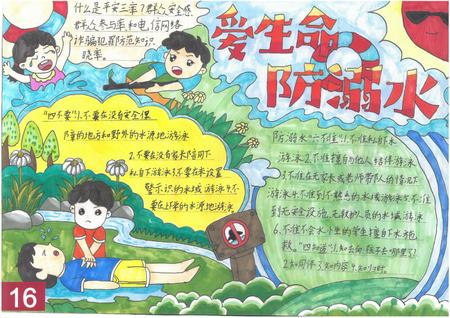 什么是平安三率?群众安全感
群众参与率和电信网络
诈骗犯罪防范知识
晓率。
爱生命
防溺水
"四不要"1.不要在没有安全保
障的地方和野外的水源地游泳
2.不要在没有家长陪同下
私自下游泳3.不要在未设置
警示识的水域游泳4.不
要在上学的水源地游泳。
防溺水"六不准"1.不准私自下水
游泳2.不准擅自和他人结伴游泳
3.不准在无家长或老师带队的情况下
游泳4.不准到不熟悉的水域游泳5.不准
到无安全设施、无救护人员的水域游泳
6.不准不会水小生的学生擅自下水施
救。"四知道"1.知去向
2.知同伴3.知内容4.知归时
16